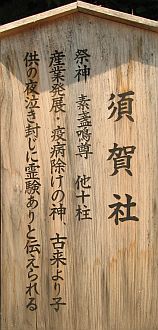 須賀社
祭神　素盞鳴尊　他十柱
産業発展・疫病除けの神　古来より子
供の夜泣き封じに霊験ありと伝えられる